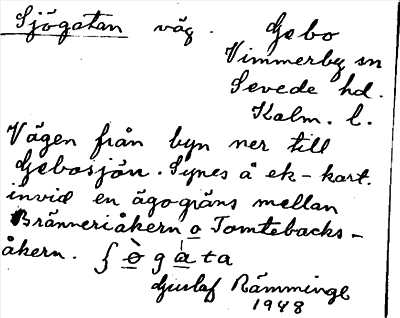 Sjögatan väg. Gebo
Vimmerby sn
Sevede hd.
Kalm. l.
Vägen från byn ner till
Gebosjön. Synes å ek-kart.
invid en ägogräns mellan
Bränneriåkern o Tomtebacks-
åkern. ʃògàta
Gustaf Rämminge
1948